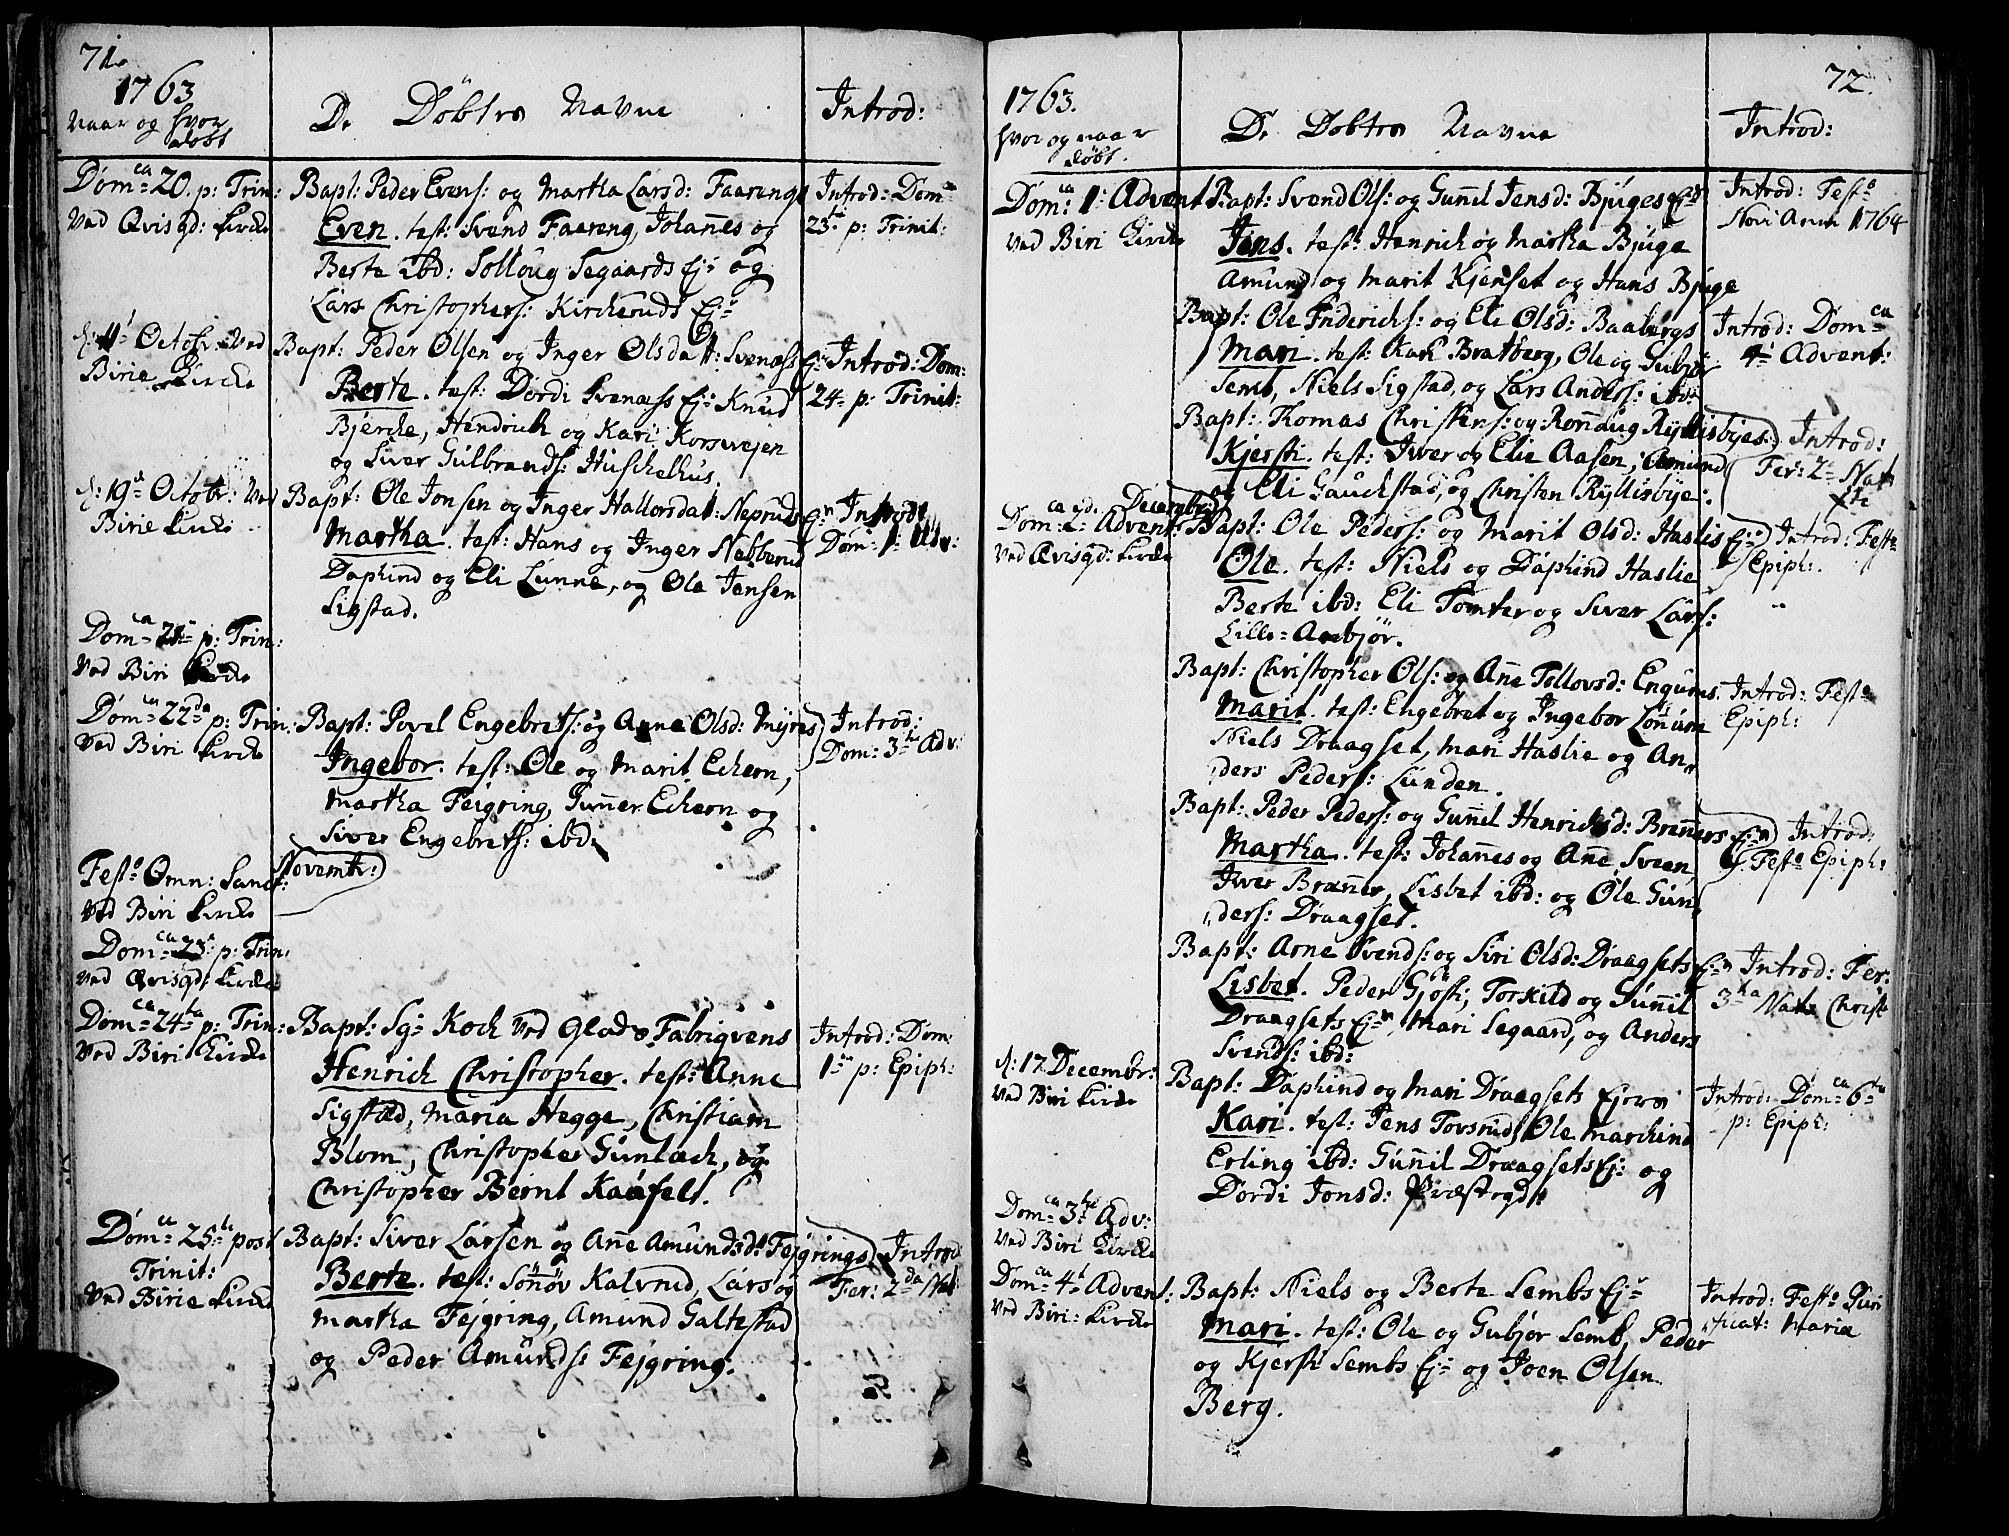 71.
1763
Naar og hvor
døbt
De Døbtes Navne
Introd:
Dom:ca 20. p: Trin:
Ved Qvisgd: Kirke
Bapt: Peder Evens: og Martha Larsd: Faarengs
Even. test: Svend Faareng, Johannes og
Berte ibd: Solloug Segaards Ejr og
Lars Christophers: Kirkeruds Ejr
Introd: Dom
23tia p: Trinit:
d: 11t Octobr: Ved
Birie Kirke
Bapt: Peder Olsen og Inger Olsdatt: Svenæss Ejr
Berte. test: Dordi Svenæss Ej: Knud
Bjerche, Hendrich og Kari Korsvejen
og Siver Gulbrands: Huschelhus.
Introd: Dom:
24 p: Trinit:
d: 19t Octobr: Ved
Birie Kirke
Bapt: Ole Jonsen og Inger Hallorsdatt: Nepruds Ejrn
Martha. test: Hans og Inger Nabberud
Daphind og Eli Lunne, og Ole Jensen
Sigstad.
Introd:
Dom: 1: Adv:
Dom:ca 21 p: Trin:
Ved Biri Kirke
Dom:ca 22da p: Trin.
Ved Biri Kirke
Bapt: Povel Engebrets: og Anne Olsd: Myres
Ingebor. test: Ole og Marit Echern,
Martha Fejgring, Gunner Echern og
Siver Engebrets: ibd:
Introd:
Dom: 3tia Adv:
Novembr:
Festo Omn: Sanct:
Ved Biri Kirke
Dom:ca 23 p: Trin:
Ved Qvisgd: Kirke
Dom:ca 24ta p: Trin:
Ved Biri Kirke
Bapt: Sgr Koch ved Glads Fabriqvens
Henrich Christopher. test: Anne
Sigstad, Maria Hegge, Christiam
Blom, Christopher Gunlach, og
Christopher Bernt Kaufelt.
Introd: Dom:
1ma p: Epiph:
Dom:ca 25ta post
Trinit:
Ved Birie Kirke
Bapt: Siver Larsen og Anne Amundsd: Fejgrings
Berte. test: Sönnöv Kalvrud, Lars og
Martha Fejgring, Amund Galtestad
og Peder Amunds: Fejgring.
Introd
Fer: 2da Nat
72.
1763.
hvor og naar
døbt.
De Døbtes Navne
Introd:
Dom:ca 1: Advent
Ved Biri Kirke
Bapt: Svend Ols: og Gunnil Jensd: Bjuges Ejrn
Jens. test: Henrich og Martha Bjuge
Amund og Marit Kjenset og Hans Bjuge
Introd: Festo
Novi Anni 1764
Bapt: Ole Friderichs: og Eli Olsd: Baabergs
Mari. test: Kari Bratberg, Ole og Gubjør
Semb, Niels Sigstad, og Lars Anders: ibd:
Introd: Dom:ca
4t Advent:
Bapt: Thomas Christens: og Rønnaug Ryllisbyes
Kjersti. test: Iver og Elie Aasen, Amund
og Eli Gauckstad, og Christen Ryllisbye.
Introd:
Fer: 2 Nat:
Decembris
Dom:ca 2 Advent:
Ved Qvisgd: Kirke
Bapt: Ole Peders: og Marit Olsd: Haslis Ejr
Ole. test: Niels og Daphind Haslie
Berte ibd: Eli Tomter og Siver Lars:
Lille-Aasbjør.
Introd: Festo
Epiph:
Bapt: Christopher Ols: og Anne Tollovsd: Engums
Marit. test: Engebret og Ingebor Lonum
Niels Draagset, Mari Haslie og An-
ders Peders: Lunden.
Introd: Festo
Epiph:
Bapt: Peder Peders: og Gunnil Henrichsd: Brenners Ejrn
Martha. test: Johannes og Anne Sveen,
Iver Brenner, Lisbet ibd: og Ole Gun-
ders: Draagset.
Introd:
Festo Epiph:
Bapt: Arne Svends: og Siri Olsd: Draagsets Ejrn
Lisbet. Peder Gjösti, Torkild og Gunnil
Draagsets Ejrn Mari Segaard, og Anders
Svends: ibd:
Introd: Fer:
3tia Nat: Christi
d: 17. Decembr:
Ved Biri Kirke
Bapt: Daphind og Mari Draagsets Ejern
Kari. test: Jens Torsrud, Ole Marchind
Erling ibd: Gunnil Draagsets Ej: og
Dordi Jonsd: Præstegd:
Introd: Dom:ca 6ta
p: Epiph:
Dom:ca 3tia Adv:
Ved Biri Kirke
Dom:ca 4t Advent:
Ved Biri: Kirke
Bapt: Niels og Berte Sembs Ejr
Mari. test: Ole og Gubjør Semb, Peder
og Kjersti Sembs Ejr og Joen Olsen
Berg.
Introd: Festo Puri
ficat: Mariæ